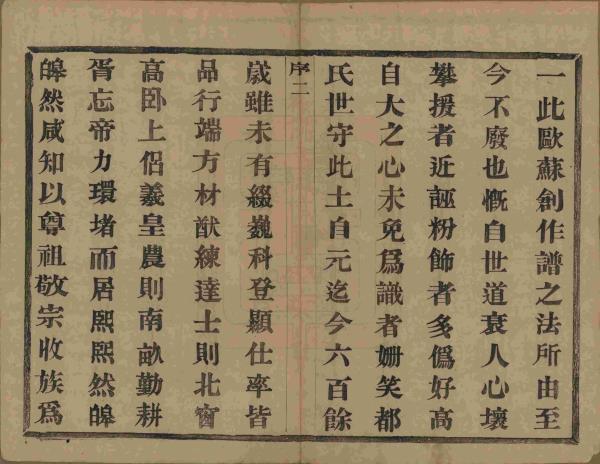 一此歐蘇創作譜之法所由至
今不廢也慨自世道衰人心壞
攀援者近誣粉飾者多僞好高
自大之心未免爲識者姍笑都
氏世守此土自元迄今六百餘
序二
歲雖未有綴巍科登顯仕率皆
品行端方材猷練達士則北窗
高卧上侶羲皇農則南畝勤耕
胥忘帝力環堵而居熙熙然皥
皥然咸知以尊祖敬宗收族爲